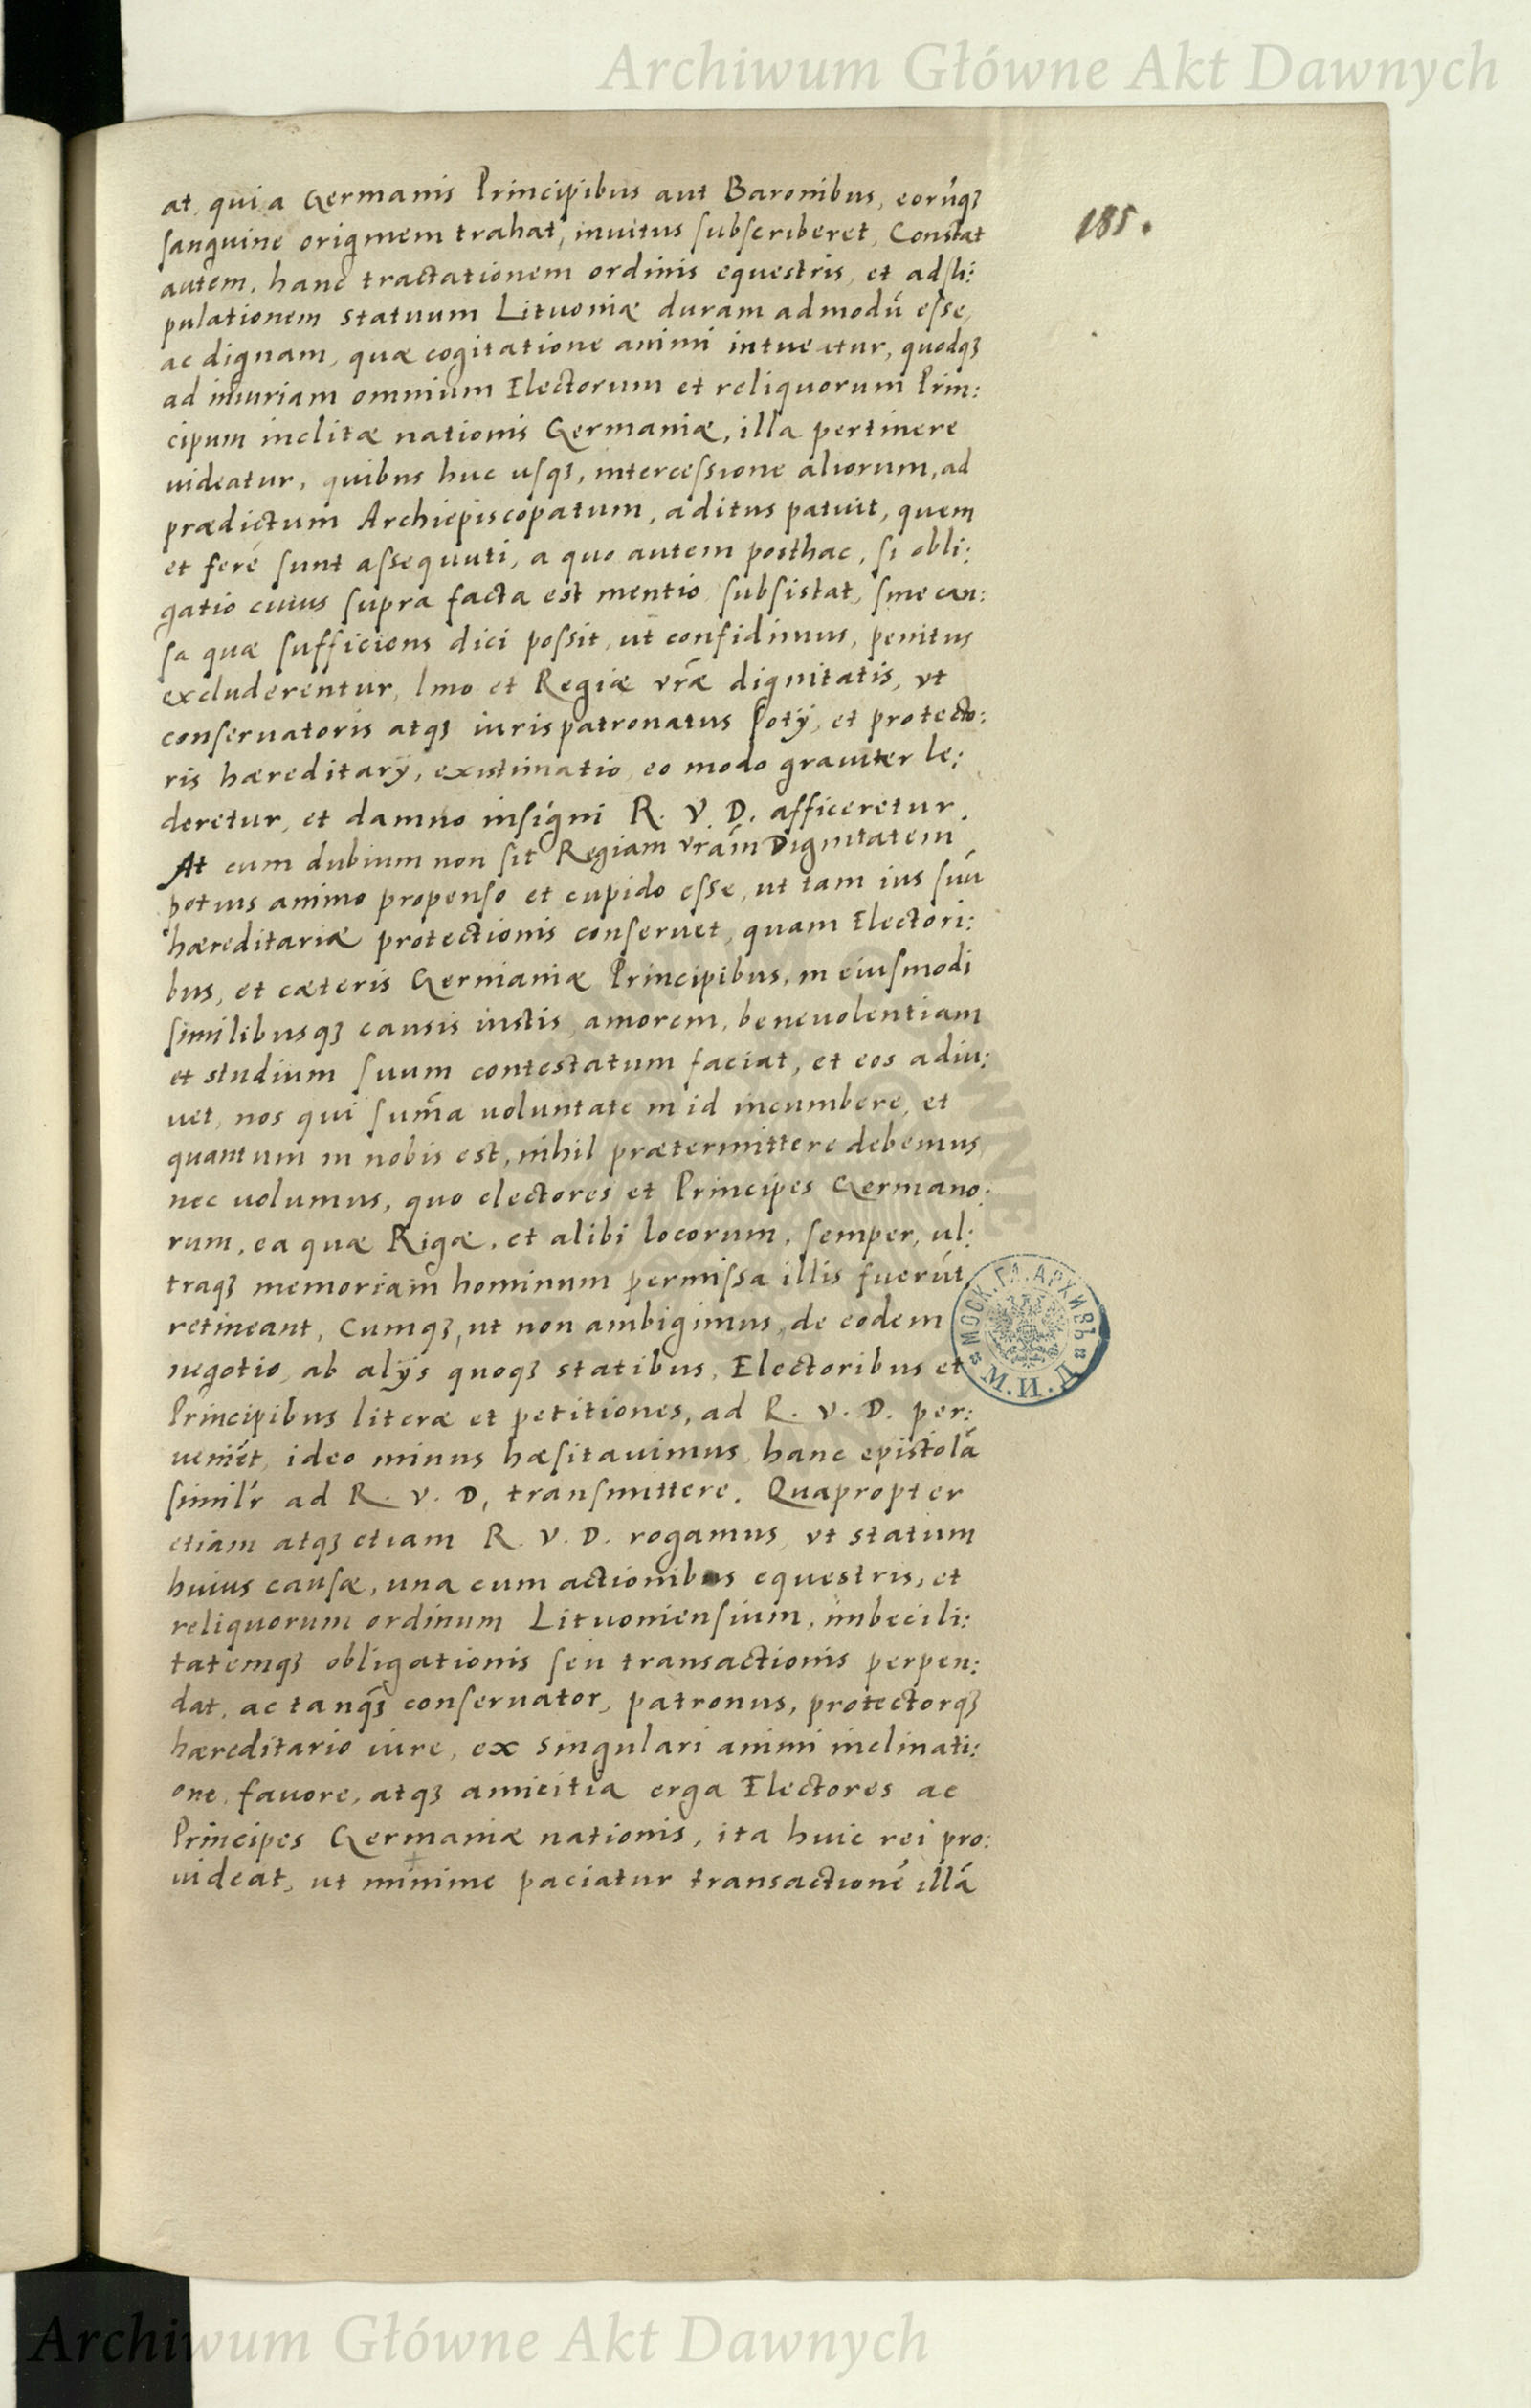 Archiwum Główne Akt Dawnych
185.
at, qui a Germanis Principibus aut Baronibus, eorúqꝫ
sanguine originem trahat, inuitus subscriberet, Constat
autem, hanc tractationem ordinis equestris, et adsti:
pulationem statuum Lituoniæ duram admodú esse,
ac dignam, quæ cogitatione animi intueatur, quodqꝫ
ad iniuriam omnium Electorum et reliquorum Prin:
cipum inclitæ nationis Germaniæ, illa pertinere
uideatur, quibus huc usqꝫ, intercessione aliorum, ad
prædictum Archiepiscopatum, aditus patuit, quem
et feré sunt assequuti, a quo autem posthac, si obli:
gatio cuius supra facta est mentio subsistat, sine cau:
sa quæ sufficiens dici possit, ut confidimus, penitus
excluderentur, Imo et Regiæ vr̃æ dignitatis, vt
conseruatoris atqꝫ iurispatronatus Potÿ, et protecto:
ris hæreditarÿ, existimatio, eo modo grauiter le:
deretur, et damno insigni R. V. D. afficeretur.
At cum dubium non sit Regiam vrám Dignitatem
potius animo propenso et cupido esse, ut tam ius suú
hæreditariæ protectionis conseruet, quam Electori:
bus, et cæteris Germaniæ Principibus, in eiusmodi
similibusqꝫ causis iustis, amorem, beneuolentiam
et studium suum contestatum faciat, et eos adiu:
uet, nos qui sum̃a uoluntate in id incumbere, et
quantum in nobis est, nihil prætermittere debemus,
nec uolumus, quo electores et Principes Germano:
rum, ea quæ Rigæ, et alibi locorum, semper, ul:
traqꝫ memoriam hominum permissa illis fuerút,
retineant, Cumqꝫ, ut non ambigimus, de eodem
negotio, ab alÿs quoqꝫ statibus, Electoribus et
Principibus literæ et petitiones, ad R. v. D. per:
ueniét, ideo minus hæsitauimus, hanc epistolá
simil'r ad R. v. D, transmittere. Quapropter
etiam atqꝫ etiam R. V. D. rogamus, vt statum
huius causæ, una cum actionibus equestris, et
reliquorum ordinum Lituoniensium, imbecili:
tatemqꝫ obligationis seu transactionis perpen:
dat, ac tanqꝫ́ conseruator, patronus, protectorqꝫ
hæreditario iure, ex singulari animi inclinati:
one, fauore, atqꝫ amicitia erga Electores ac
Principes Germaniæ nationis, ita huic rei pro:
uideat, ut minime paciatur transactioné illá
МОСК. ГЛ. АРХИВЪ
М. И. Д.
Archiwum Główne Akt Dawnych